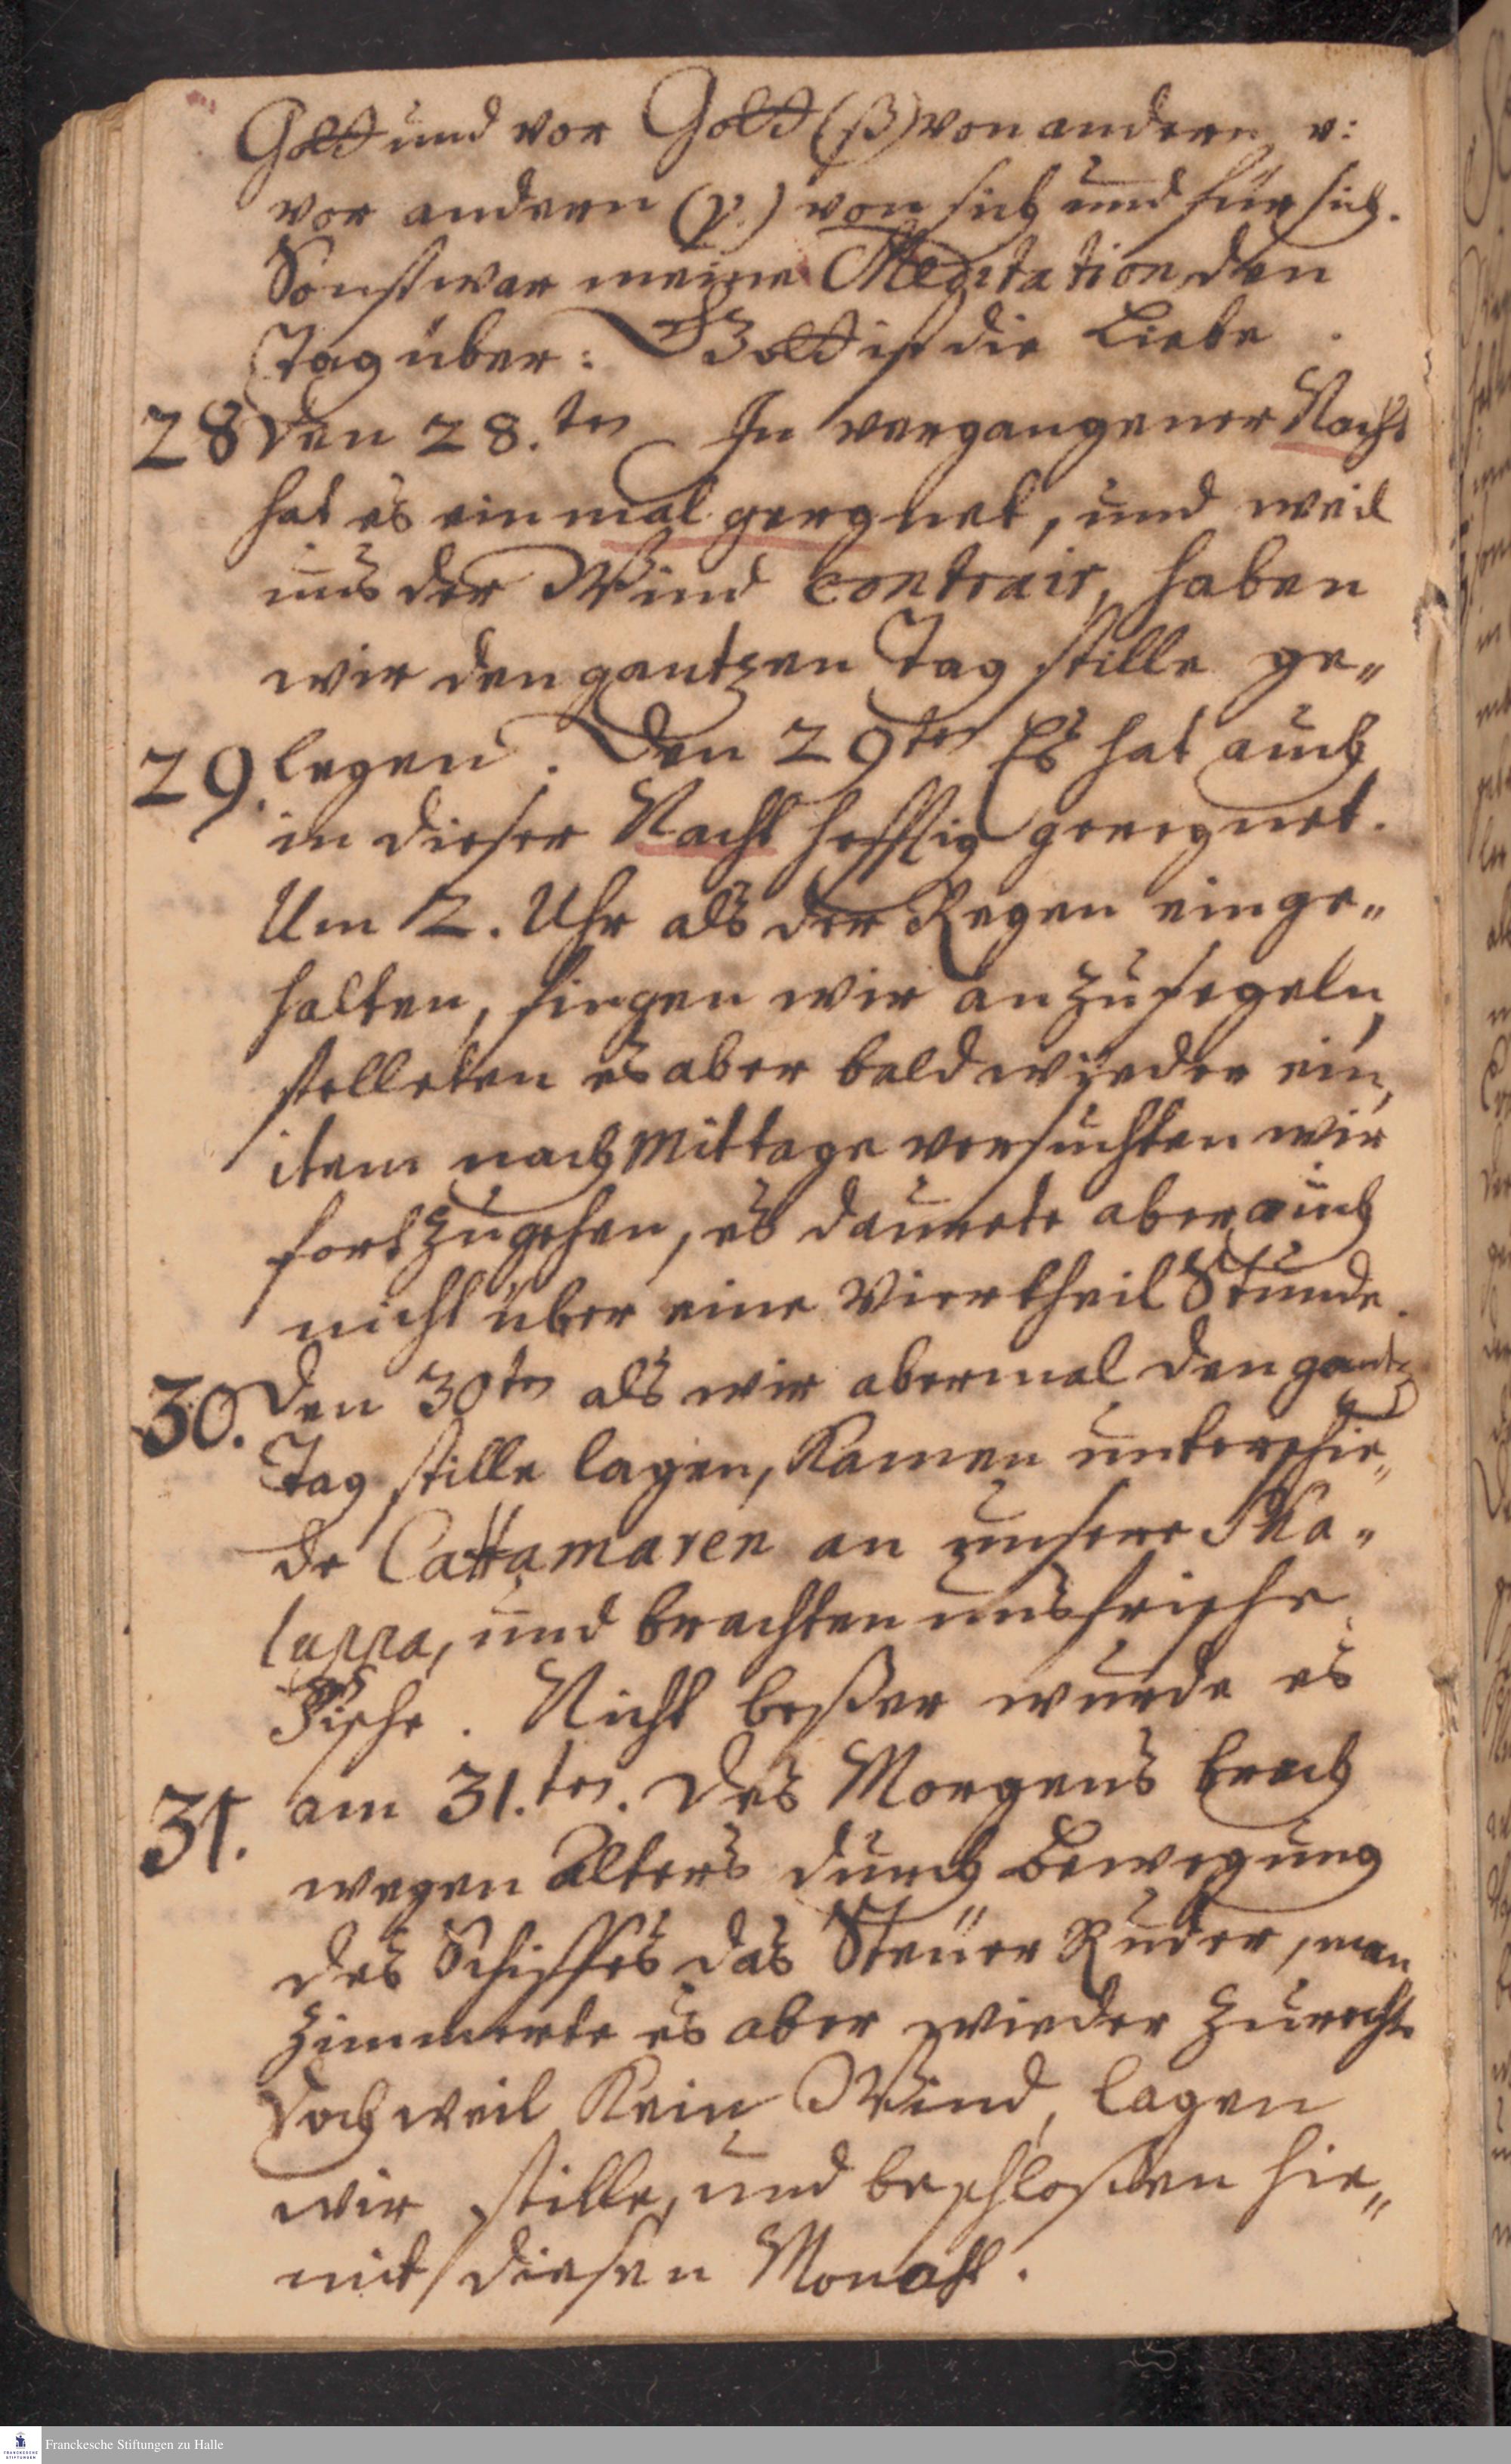 Gott und vor Gott (β) von andern u:
vor andern (γ.) von sich und für sich.
Sonst war meine Meditation den
Tag über: Gott ist die Liebe.
28 Den 28.ten In vergangener Nacht
hat es einmal geregnet, und weil
uns der Wind contrair, haben
wir den gantzen Tag stille ge„
29. legen. Den 29ten Es hat auch
in dieser Nacht hefftig geregnet.
Um 12. Uhr als der Regen einge„
halten, fingen wir an zu segeln,
stelleten es aber bald wieder ein,
item nach Mittage versuchten wir
fortzugehen, es daurete aber auch
nicht über eine Viertheil Stunde.
30. Den 30ten als wir abermal den gantzen
Tag stille lagen, kamen unterschie„
de Cattamaren an unsere Sha„
luppa, und brachten uns frische
Fische. Nicht beßer wurde es
31. am 31.ten. Des Morgens brach
wegen Alters durch Bewegung
des Schiffes das Steuer Ruder, man
zimmerte es aber wieder zurecht.
Doch weil kein Wind, lagen
wir stille, und beschloßen hie„
mit diesen Monath.
Franckesche Stiftungen zu Halle